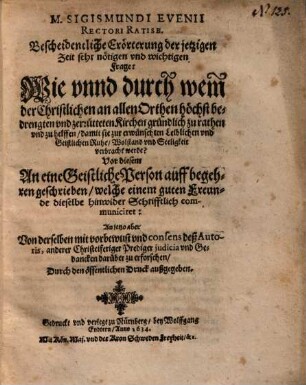 M. SIGISMUNDI EVENII
RECTORI RATISB.
Bescheidentliche Erörterung der jetzigen
Zeit sehr nötigen vnd wichtigen
Frage:
Wie vnnd durch wem̃
der Christlichen an allen Orthen höchst be-
drengten vnd zerrütteten Kirchen gründlich zu rathen
vnd zu helffen / damit sie zur erwünschten Leiblichen vnd
Geistlichen Ruhe / Wolstand vnd Seeligkeit
verbracht werde?
Vor diesem
An eine Geistliche Person auff begeh-
ren geschrieben / welche einem guten Freun-
de dieselbe hinwider Schrifftlich com-
municiret:
An jetzo aber
Von derselben mit vorbewust vnd consens deß Auto-
ris, anderer Christeiferiger Prediger judicia vnd Ge-
dancken darüber zu erforschen /
Durch den öffentlichen Druck außgegeben.
Gedruckt vnd verlegt zu Nürnberg / bey Wolffgang
Endtern / Anno 1634.
Mit Kön. Maj. vnd der Kron Schweden Freyheit / &c.